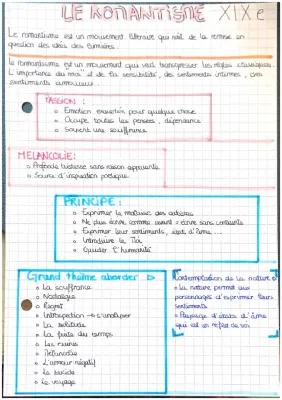 LE ROMANTISME XIXe
Le romantisme est un mouvement littéraire qui naît de la remise en
question des idées des Lumières.
Le romantisme est un mouvement qui veut transgresser les règles classiques.
L'importance du moi et de la sensibilité, des sentiments intimes, des
sentiments amoureux.
PASSION :
o Emotion excessive pour quelque chose
o Occupe toutes les pensées, dépendance
o Souvent une souffrance
MELANCOLIE:
o Profonde tristesse sans raison apparente
o Source d'inspiration poétique
PRINCIPE :
o Exprimer le malaise des artistes
o Ne plus écrire comme avant → écrire sans contrainte
o Exprimer leur sentiments, état d'âme ...
o Introduire le Moi
o Guider l'humanité
Grand thème aborder
o La souffrance
o Nostalgie
o Regret
o Introspection → s'analyser
o La solitude
o La fuite du temps
o Les ruines
o Mélancolie
o L'amour négatif
o Le suicide
o Le voyage
Contemplation de la nature
o La nature permet aux
personnages d'exprimer leurs
sentiments
o Paysage d'états d'âme
qui est un reflet de soi